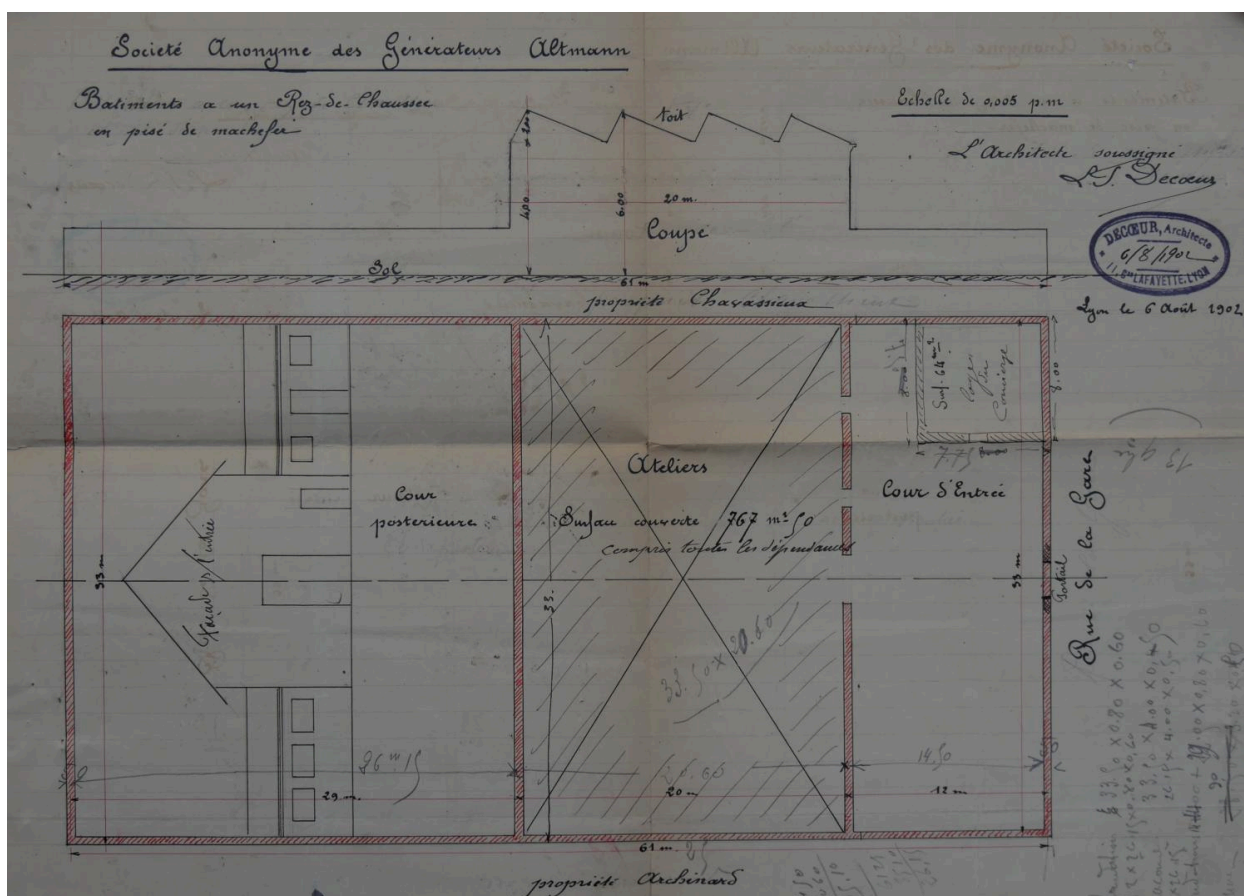 Societé Anonyme des Générateurs Altmann
Batiments a un Rez-de-Chaussée
en pisé de machefer
Echelle de 0,005 p.m
L'Architecte soussigné
L.S. Decœur
DECŒUR, Architecte
6/8/1902
11, Bd LAFAYETTE, LYON
Lyon le 6 Août 1902
toit
2.00
4.00
6.00
20 m.
Coupe
Sol
61 m
propriété Chavassieux
8.00
Surf. 64 m²
Loge
du
Concierge
8.00
7.75
Ateliers
Cour
posterieure
Surface couverte 767 m² 50
compris toutes les dépendances
Cour d'Entrée
Façade s/ l'entrée
33 m
33.
33 m
Portail
Rue de la Gare
33.50 x 20.60
26 m 15
20.60
14.50
29 m.
20 m
12 m
61 m.
propriété Archinard